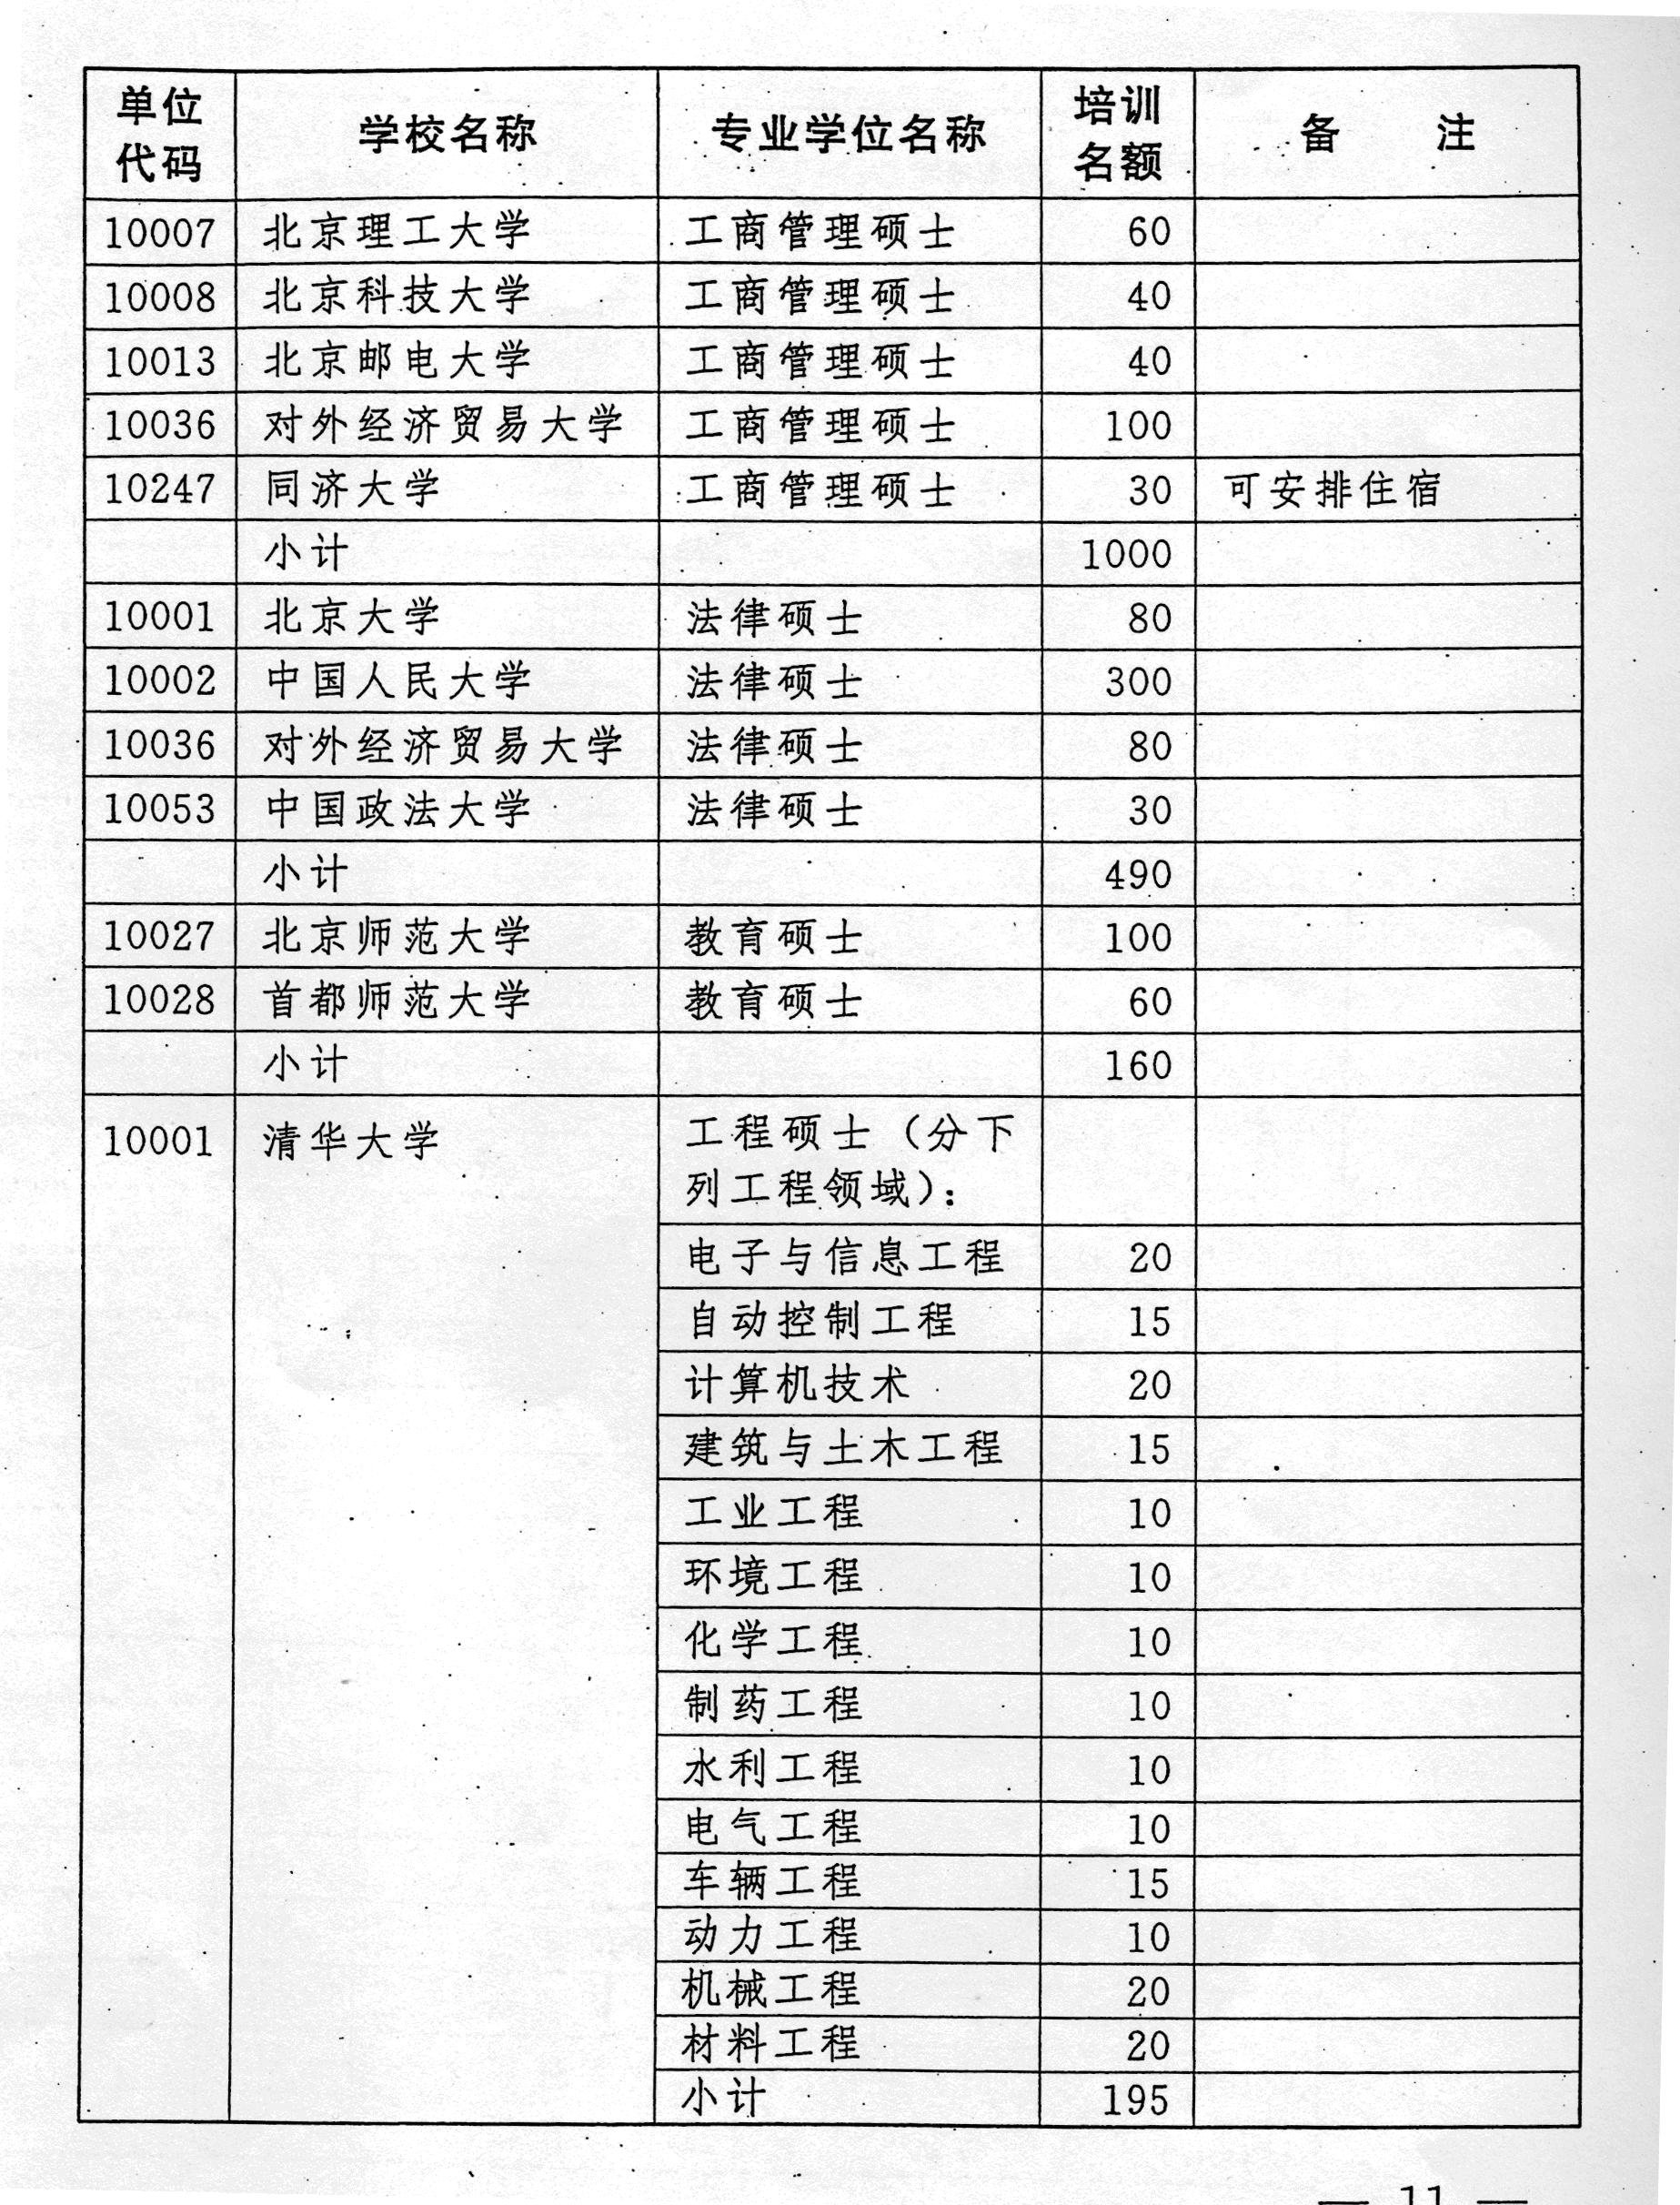 单位代码 学校名称 专业学位名称 培训名额 备注
10007 北京理工大学 工商管理硕士 60
10008 北京科技大学 工商管理硕士 40
10013 北京邮电大学 工商管理硕士 40
10036 对外经济贸易大学 工商管理硕士 100
10247 同济大学 工商管理硕士 30 可安排住宿
小计 1000
10001 北京大学 法律硕士 80
10002 中国人民大学 法律硕士 300
10036 对外经济贸易大学 法律硕士 80
10053 中国政法大学 法律硕士 30
小计 490
10027 北京师范大学 教育硕士 100
10028 首都师范大学 教育硕士 60
小计 160
10001 清华大学 工程硕士（分下
列工程领域）：
电子与信息工程 20
自动控制工程 15
计算机技术 20
建筑与土木工程 15
工业工程 10
环境工程 10
化学工程 10
制药工程 10
水利工程 10
电气工程 10
车辆工程 15
动力工程 10
机械工程 20
材料工程 20
小计 195
— 11 —